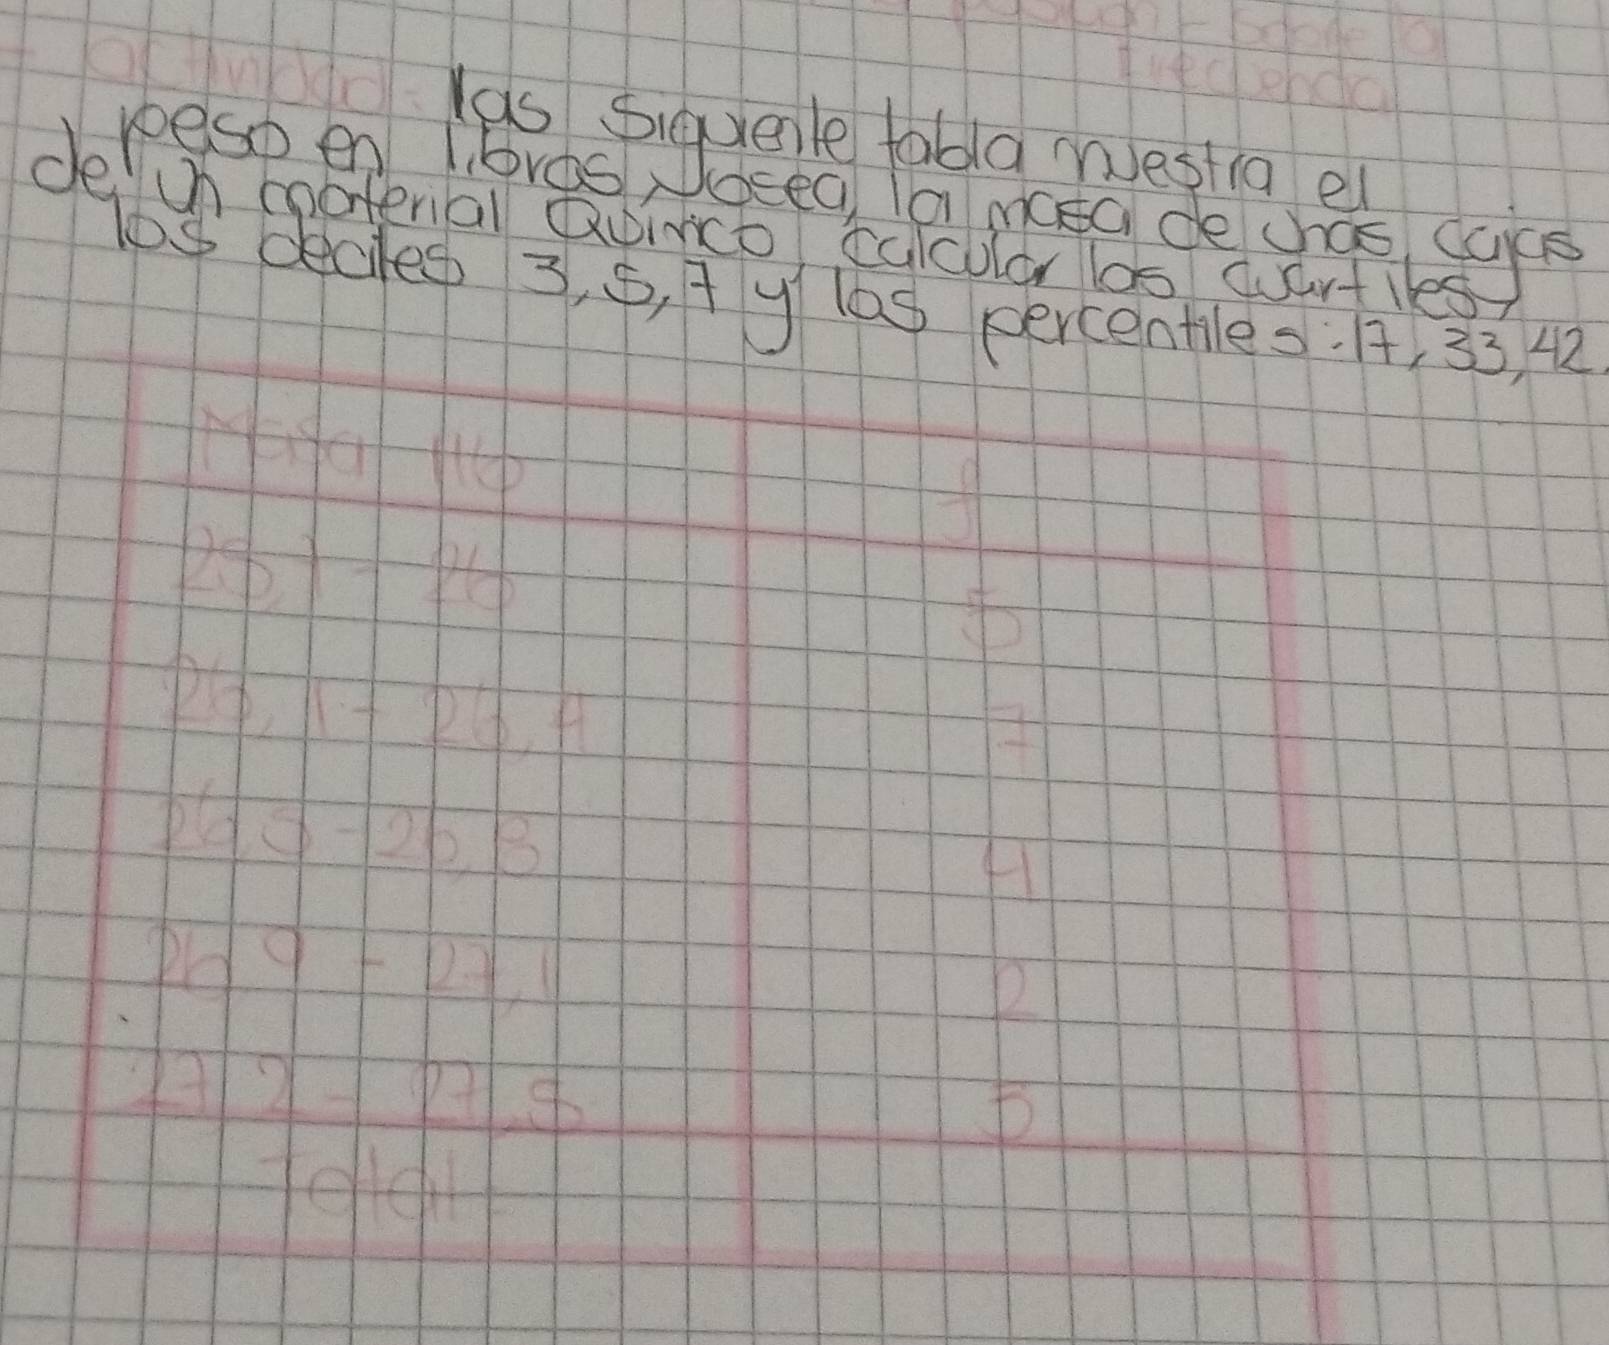 actividad:
las siguiente tabla muestra el
peso en libras, osea, la masa de unas cajas
de un material Quimico, calcular los cuartiles y
los deciles 3, 5, 7 y los percentiles: 17, 33, 42.
Masa lb f
25,1 - 26 5
26,1 - 26,4 7
26,5 - 26,8 4
26,9 - 27,1 2
27,2 - 27,5 5
Total